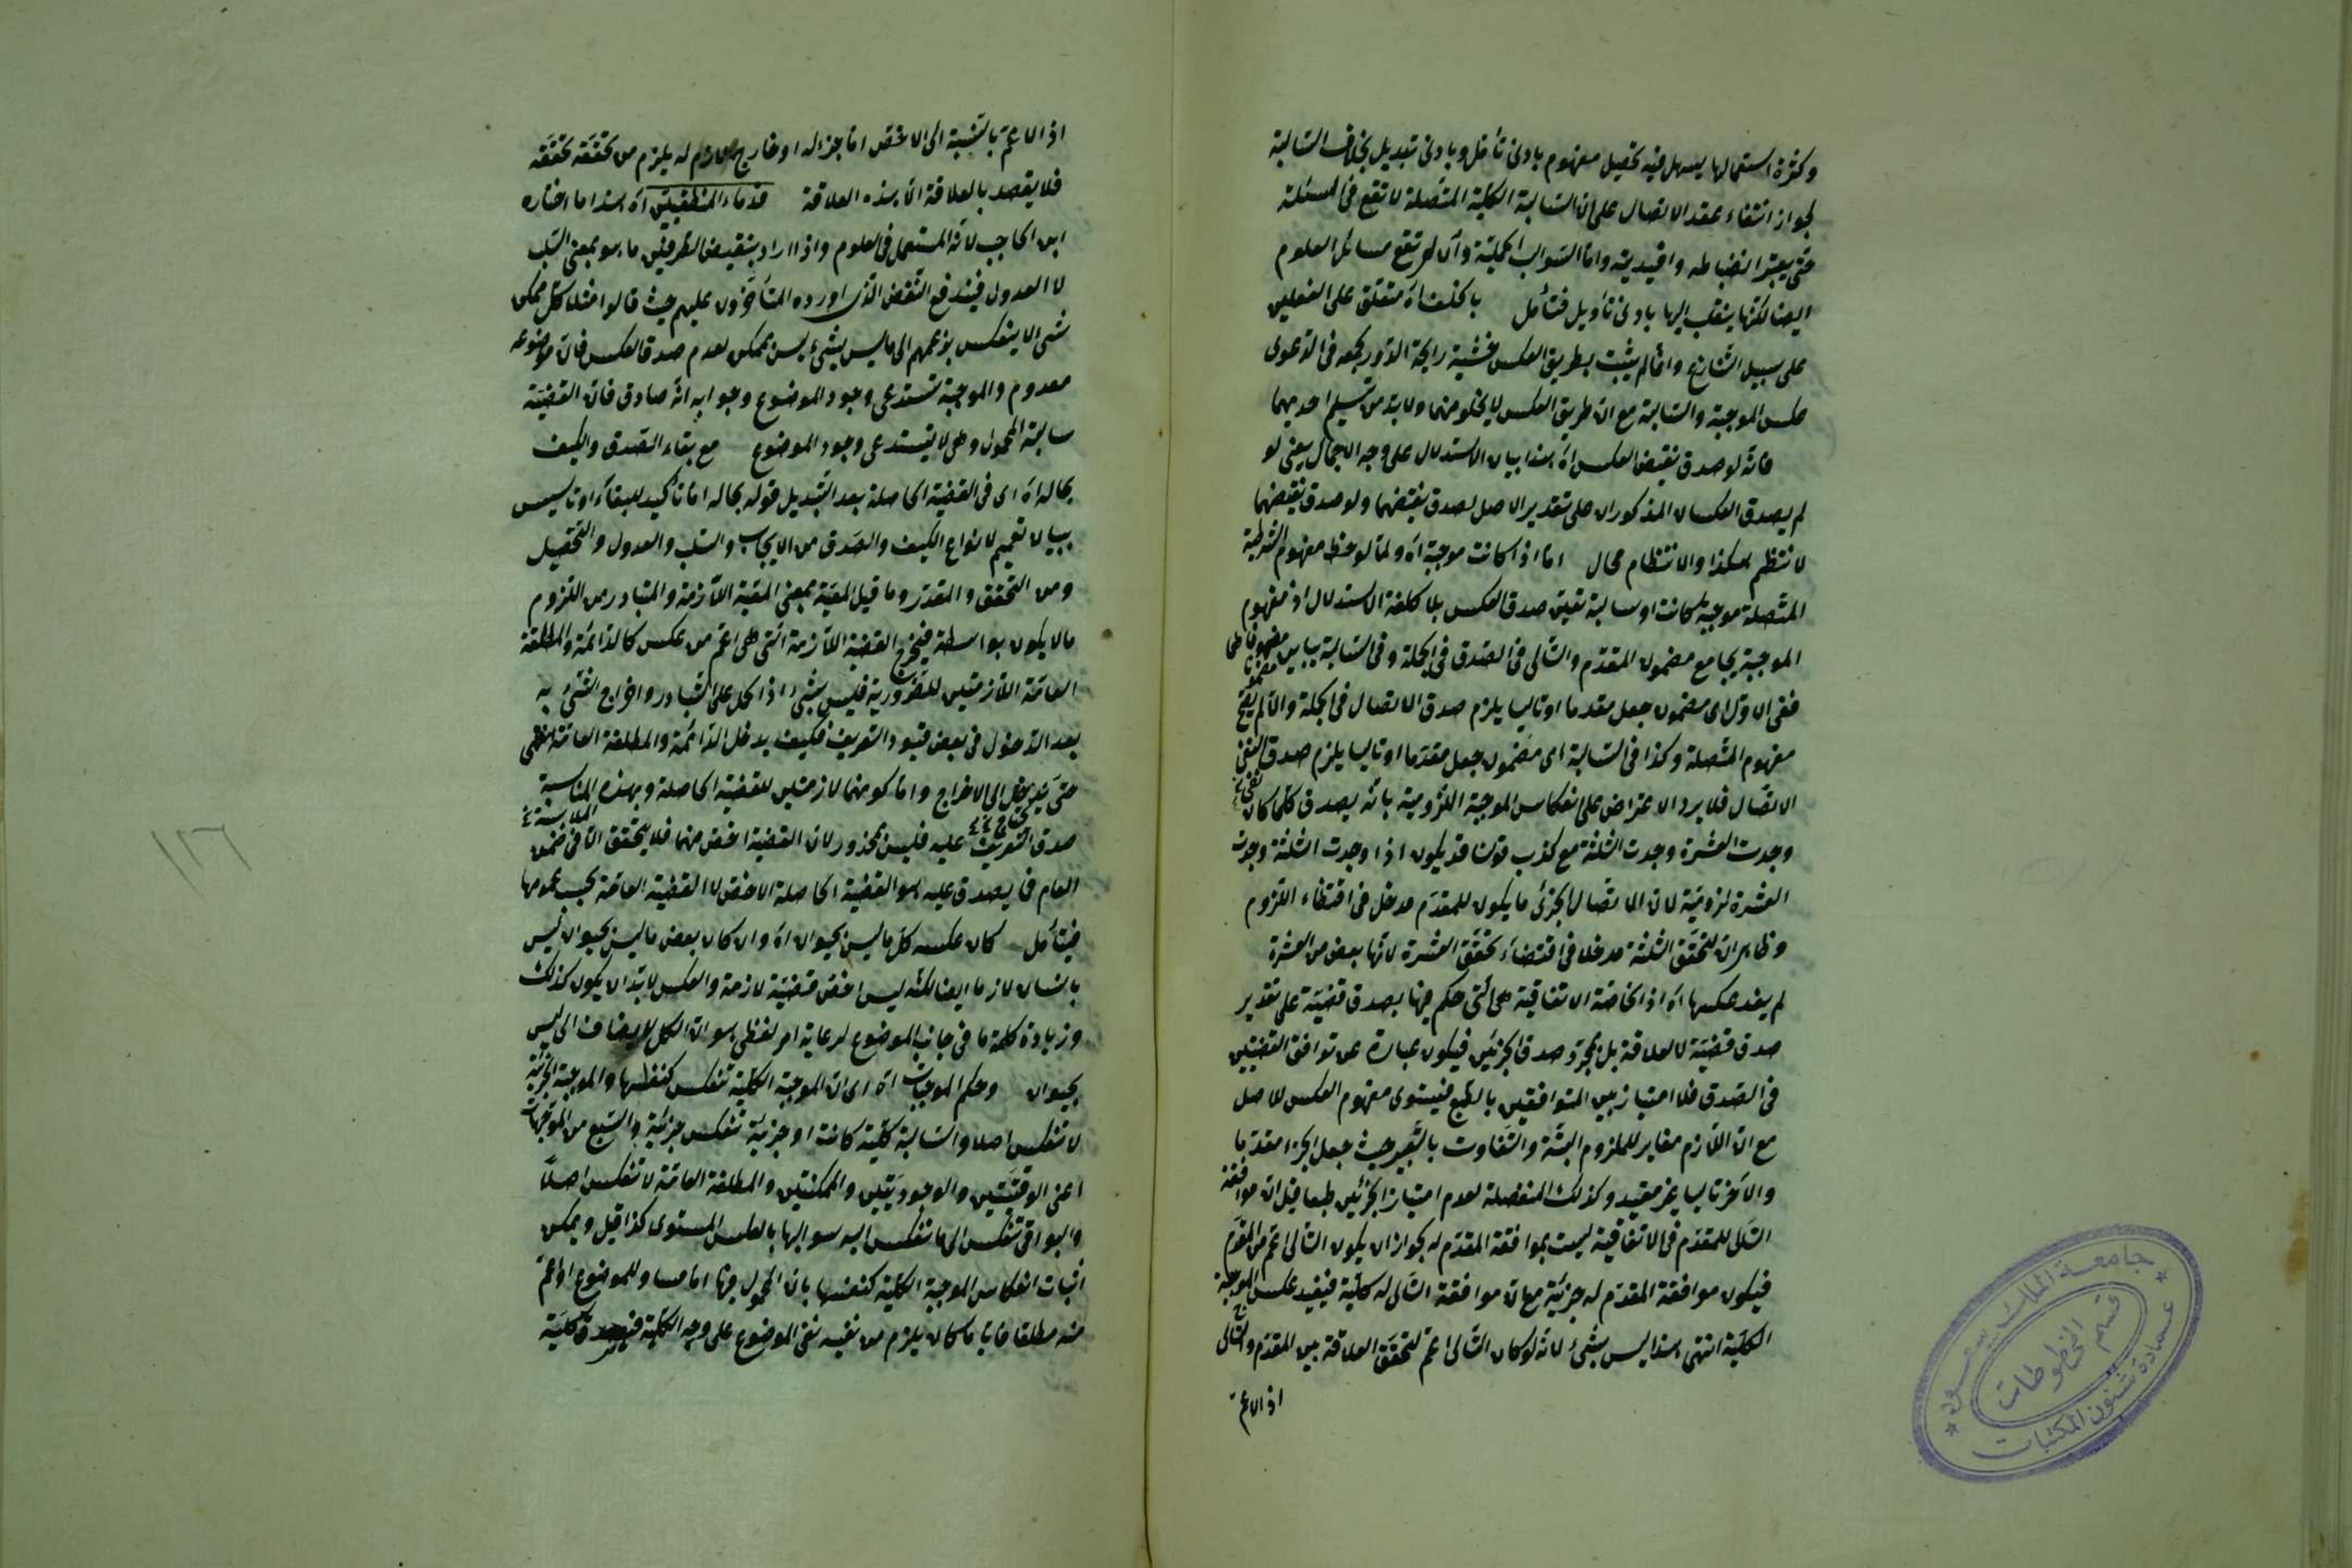 وكثرة استعمالها يسهل فيه تحصيل مفهوم بادنى تأمل وبادنى تبديل بخلاف السالبة
لجواز انتفاء عقد الاتصال على ان السالبة الكلية المتصلة لا تقع في المسئلة
حتى يعتبر انضباطه واما السوالب الحملية وان لم تقع مسائل العلوم
ايضا لكنها ينقلب اليها بادنى تأويل فتأمل بالخلف اه متعلق على الفعلين
على سبيل التنازع وانما لم يثبت بطريق العكس خشية رايحة الدور لجمعه في الدعوى
عكس الموجبة والسالبة مع ان طريق العكس لا يخلو منهما ولا بد من تسليم احديهما
فانه لو صدق نقيض العكس اه هذا بيان الاستدلال على وجه الاجمال يعني لو
لم يصدق العكسان المذكوران على تقدير الاصل لصدق نقيضهما ولو صدق نقيضهما
لانتظم هكذا والانتظام محال اما اذا كانت موجبة اه ولما لوحظ مفهوم الشرطية
المتصلة موجبة كانت او سالبة تعين صدق العكس بلا كلفة الاستدلال اذ مفهوم
الموجبة يجامع مضمون المقدم والتالي في الصدق في الجملة وفي السالبة يباين
ففي الاول اى مضمون جعل مقدما او تاليا يلزم صدق الاتصال في الجملة والا لم يقع
مفهوم المتصلة وكذا في السالبة اى مضمون جعل مقدما او تاليا يلزم صدق
الاتصال فلا يرد الاعتراض على انعكاس الموجبة اللزومية بانه يصدق كلما كان
وجدت العشرة وجدت الثلثة مع كذب قولنا قد يكون اذا وجدت الثلثة وجدت
العشرة لزومية لان الاتصال الجزئى ما يكون للمقدم مدخل في اقتضاء اللزوم
وظاهر ان لتحقق الثلثة مدخلا في اقتضاء تحقق العشرة لانها بعض من العشرة
لم يفد عكسها اه اذ الخاصة الاتفاقية هى التى حكم فيها بصدق قضية على تقدير
صدق قضية لا لعلاقة بل بمجرد صدق الجزئين فيكون عبارة عن توافق القضيتين
في الصدق فلا امتياز بين المتوافقين بالطبع فيستوى مفهوم العكس للاصل
مع ان اللازم مغاير للملزوم البتة والتفاوت بالتعبير حيث جعل الجزء مقدما
والآخر تاليا غير مفيد وكذلك المنفصلة لعدم امتياز الجزئين طبعا قيل ان موافقة
التالى للمقدم في الاتفاقية ليست بموافقة المقدم له لجواز ان يكون التالى اعم من المقدم
فيكون موافقة المقدم له جزئية مع ان موافقة التالى له كلية فيفيد عكس الموجبة
الكلية انتهى هذا ليس بشئ لانه لو كان التالى اعم لتحقق العلاقة بين المقدم والتالى
اذ الاعم
اذ الاعم بالنسبة الى الاخص اما جزء له او خارج لازم له يلزم من تحققه تحققه
فلا يقصد بالعلاقة الا هذه العلاقة قدماء المنطقيين اه هذا ما اختاره
ابن الحاجب لانه المستعمل في العلوم واذا اراد بنقيض الطرفين ما هو بمعنى السلب
لا العدول فيندفع النقض الذى اورده المتأخرون عليهم حيث قالوا مثلا كل ممكن
شئ لا ينعكس بزعمهم الى ما ليس بشئ ليس بممكن لعدم صدق العكس فان موضوعه
معدوم والموجبة تستدعى وجود الموضوع وجوابه انه صادق فان القضية
سالبة المحمول وهى لا يستدعى وجود الموضوع مع بقاء الصدق والكيف
بحاله اه اى في القضية الحاصلة بعد التبديل قوله بحاله اما تأكيد للبقاء او تأسيس
ببيان تعميم لانواع الكيف والصدق من الايجاب والسلب والعدول والتحصيل
ومن المحقق والمقدر وما قيل المعية بمعنى المعية اللازمة والمتبادر من اللزوم
ما لا يكون بواسطة فيخرج القضية اللازمة التى هى اعم من عكس كالدائمة والمطلقة
العامة اللازمتين للضرورية فليس بشئ اذ الحمل على التبادر واخراج الشئ به
بعد الدخول في بعض قيود التعريف فكيف يدخل الدائمة والمطلقة العامة
حتى يحتاج الى الاخراج واما كونهما لازمتين للقضية الحاصلة وبهذه المناسبة
صدق التعريف عليه فليس بمحذور لان القضية اخص منهما فلا يتحقق الا في ضمن
العام فما يصدق عليه هو القضية الحاصلة الاخص لا القضية العامة بحسب عمومها
فيتأمل كان عكسه كل ما ليس بحيوان اه وان كان بعض ما ليس بحيوان ليس
بانسان لازما ايضا لكنه ليس اخص قضية لازمة والعكس لا بد ان يكون كذلك
وزيادة كلمة ما في جانب الموضوع لرعاية امر لفظى هو ان الكل لا يضاف الى ليس
بحيوان وحكم الموجبات اه اى ان الموجبة الكلية تنعكس كنفسها والموجبة الجزئية
لا تنعكس اصلا والسالبة كلية كانت او جزئية تنعكس جزئية والتسع من الموجهات
اعنى الوقتيتين والوجوديتين والممكنتين والمطلقة العامة لا تنعكس اصلا
والبواقى تنعكس الى ما تنعكس اليه سوالبها بالعكس المستوى كذا قيل ويمكن
اثبات انعكاس الموجبة الكلية كنفسها بان المحمول فيها اما مساو للموضوع او اعم
منه مطلقا فايا ما كان يلزم من نفيه نفى الموضوع على وجه الكلية فيصدق كلية
١١٦
جامعة الملك سعود
قسم المخطوطات
عمادة شئون المكتبات